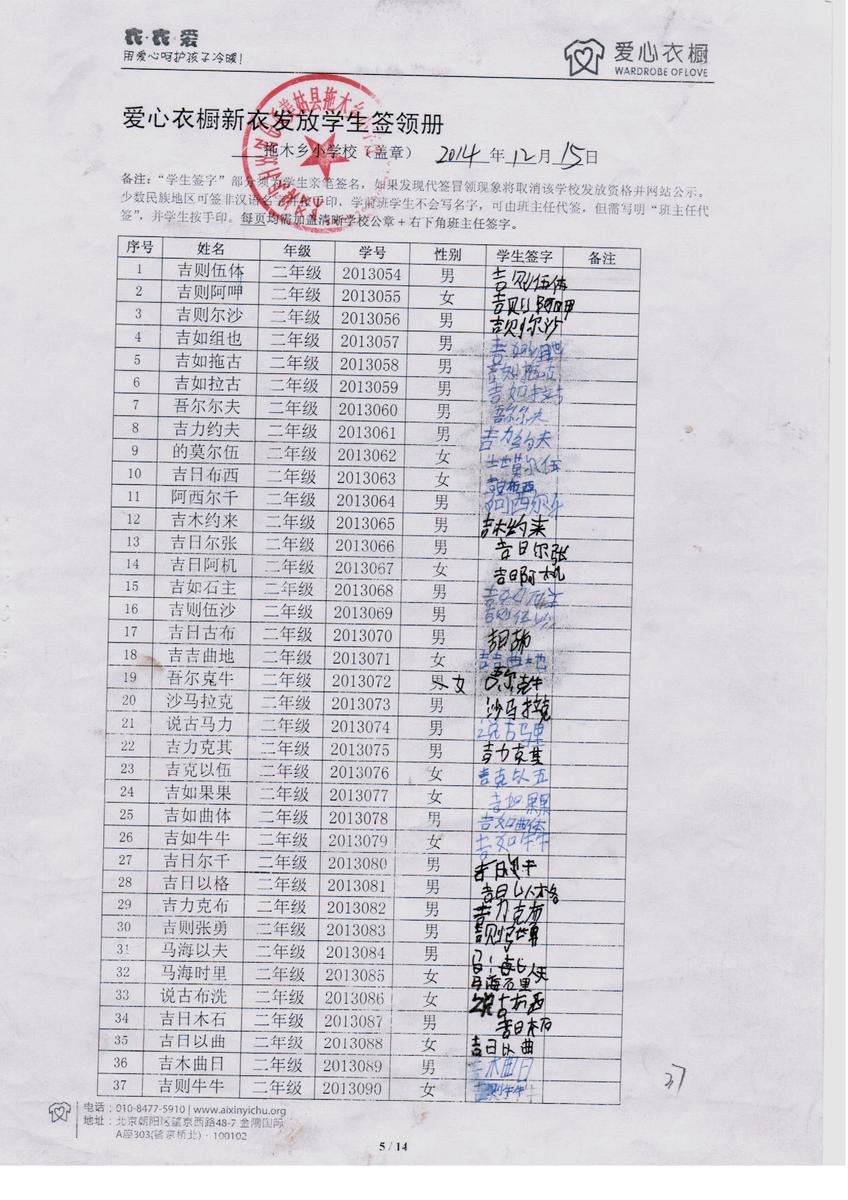 衣·衣·爱
用爱心呵护孩子冷暖!
爱心衣橱
WARDROBE OF LOVE
爱心衣橱新衣发放学生签领册
拖木乡小学校（盖章） 2014 年 12 月 15 日
备注：“学生签字”部分须为学生亲笔签名，如果发现代签冒领现象将取消该学校发放资格并网站公示。
少数民族地区可签非汉语名字并按手印，学前班学生不会写名字，可由班主任代签，但需写明“班主任代
签”，并学生按手印。每页均需加盖清晰学校公章＋右下角班主任签字。
序号 姓名 年级 学号 性别 学生签字 备注
1 吉则伍体 二年级 2013054 男 吉则伍体
2 吉则阿呷 二年级 2013055 女 吉则阿呷
3 吉则尔沙 二年级 2013056 男 吉则尔沙
4 吉如组也 二年级 2013057 男 吉如组也
5 吉如拖古 二年级 2013058 男 吉如拖古
6 吉如拉古 二年级 2013059 男 吉如拉古
7 吾尔尔夫 二年级 2013060 男 吾尔尔夫
8 吉力约夫 二年级 2013061 男 吉力约夫
9 的莫尔伍 二年级 2013062 女 莫尔伍
10 吉日布西 二年级 2013063 女 吉日布西
11 阿西尔千 二年级 2013064 男 阿西尔千
12 吉木约来 二年级 2013065 男 吉木约来
13 吉日尔张 二年级 2013066 男 吉日尔张
14 吉日阿机 二年级 2013067 女 吉日阿机
15 吉如石主 二年级 2013068 男
16 吉则伍沙 二年级 2013069 男 吉则伍沙
17 吉日古布 二年级 2013070 男 吉日古布
18 吉吉曲地 二年级 2013071 女 吉吉曲地
19 吾尔克牛 二年级 2013072 男 女 吾尔克牛
20 沙马拉克 二年级 2013073 男 沙马拉克
21 说古马力 二年级 2013074 男 说古马里
22 吉力克其 二年级 2013075 男 吉力克其
23 吉克以伍 二年级 2013076 女 吉克以五
24 吉如果果 二年级 2013077 女 吉如果果
25 吉如曲体 二年级 2013078 男 吉如曲体
26 吉如牛牛 二年级 2013079 女 吉如牛牛
27 吉日尔千 二年级 2013080 男 吉日尔千
28 吉日以格 二年级 2013081 男 吉日以格
29 吉力克布 二年级 2013082 男 吉力克布
30 吉则张勇 二年级 2013083 男 吉则
31 马海以夫 二年级 2013084 男 马海以夫
32 马海时里 二年级 2013085 女 马海石里
33 说古布洗 二年级 2013086 女 说古布西
34 吉日木石 二年级 2013087 男 吉日木石
35 吉日以曲 二年级 2013088 女 吉日以曲
36 吉木曲日 二年级 2013089 男 吉木曲日
37 吉则牛牛 二年级 2013090 女 吉则牛牛
37
电话：010-8477-5910 | www.aixinyichu.org
地址：北京朝阳区望京西路48-7 金隅国际
A座303(望京桥北)·100102
5 / 14